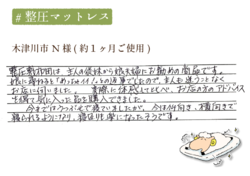 #整圧マットレス
木津川市N様(約1ヶ月ご使用)
整圧敷布団は、主人の妹から娘夫婦にお勧めの商品です。
娘に尋ねると「めっちゃイイ」との返事でしたので、主人も迷うことなく
お店に伺いました。実際に体感してもらい、お店の方のアドバイス
も頂いて気に入った品を購入できました。
今まではうつぶせで寝ていましたが、今は仰向き、横向きで
寝られるようになり、寝返りも楽になったそうです。